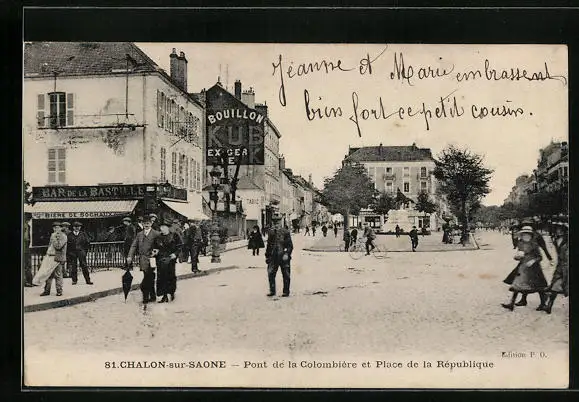 Jeanne et Marie embrassent
bien fort ce petit cousin.
BOUILLON
KUB
EXIGER
BAR DE LA BASTILLE
BIÈRE DE SOCHAUX
Edition P. O.
81. CHALON-sur-SAONE – Pont de la Colombière et Place de la République